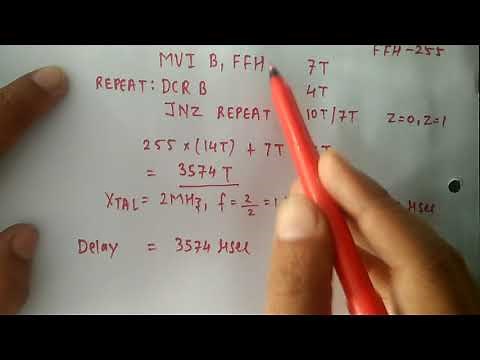 FFH-255
MVI B, FFH 7T
REPEAT: DCR B 4T
JNZ REPEAT 10T/7T Z=0, Z=1
255 × (14T) + 7T
= 3574 T
XTAL = 2MHz, f = 2/2 = 1
Delay = 3574 μsec